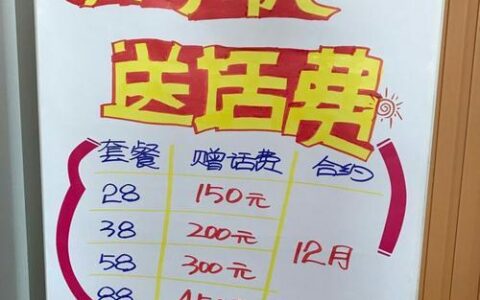 送话费
套餐 赠话费 合约
28 150元
38 200元
58 300元
12月
88